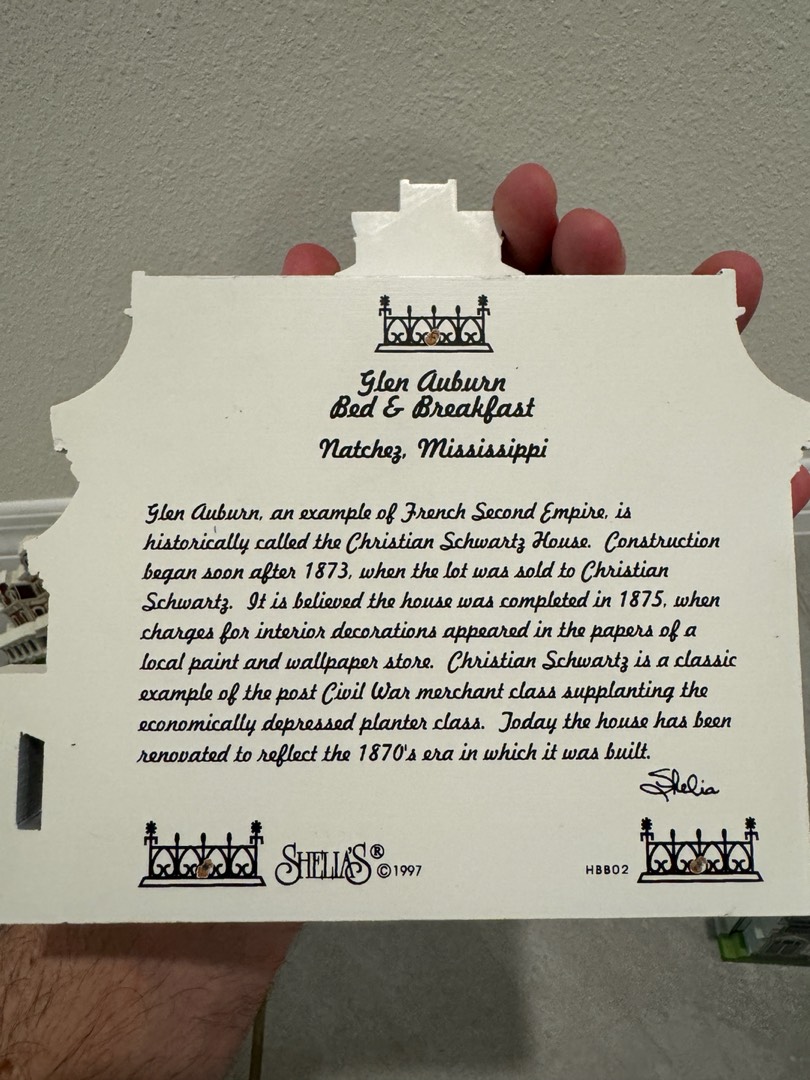 Glen Auburn
Bed & Breakfast
Natchez, Mississippi
Glen Auburn, an example of French Second Empire, is
historically called the Christian Schwartz House. Construction
began soon after 1873, when the lot was sold to Christian
Schwartz. It is believed the house was completed in 1875, when
charges for interior decorations appeared in the papers of a
local paint and wallpaper store. Christian Schwartz is a classic
example of the post Civil War merchant class supplanting the
economically depressed planter class. Today the house has been
renovated to reflect the 1870's era in which it was built.
Shelia
SHELIA'S® ©1997
HBB02